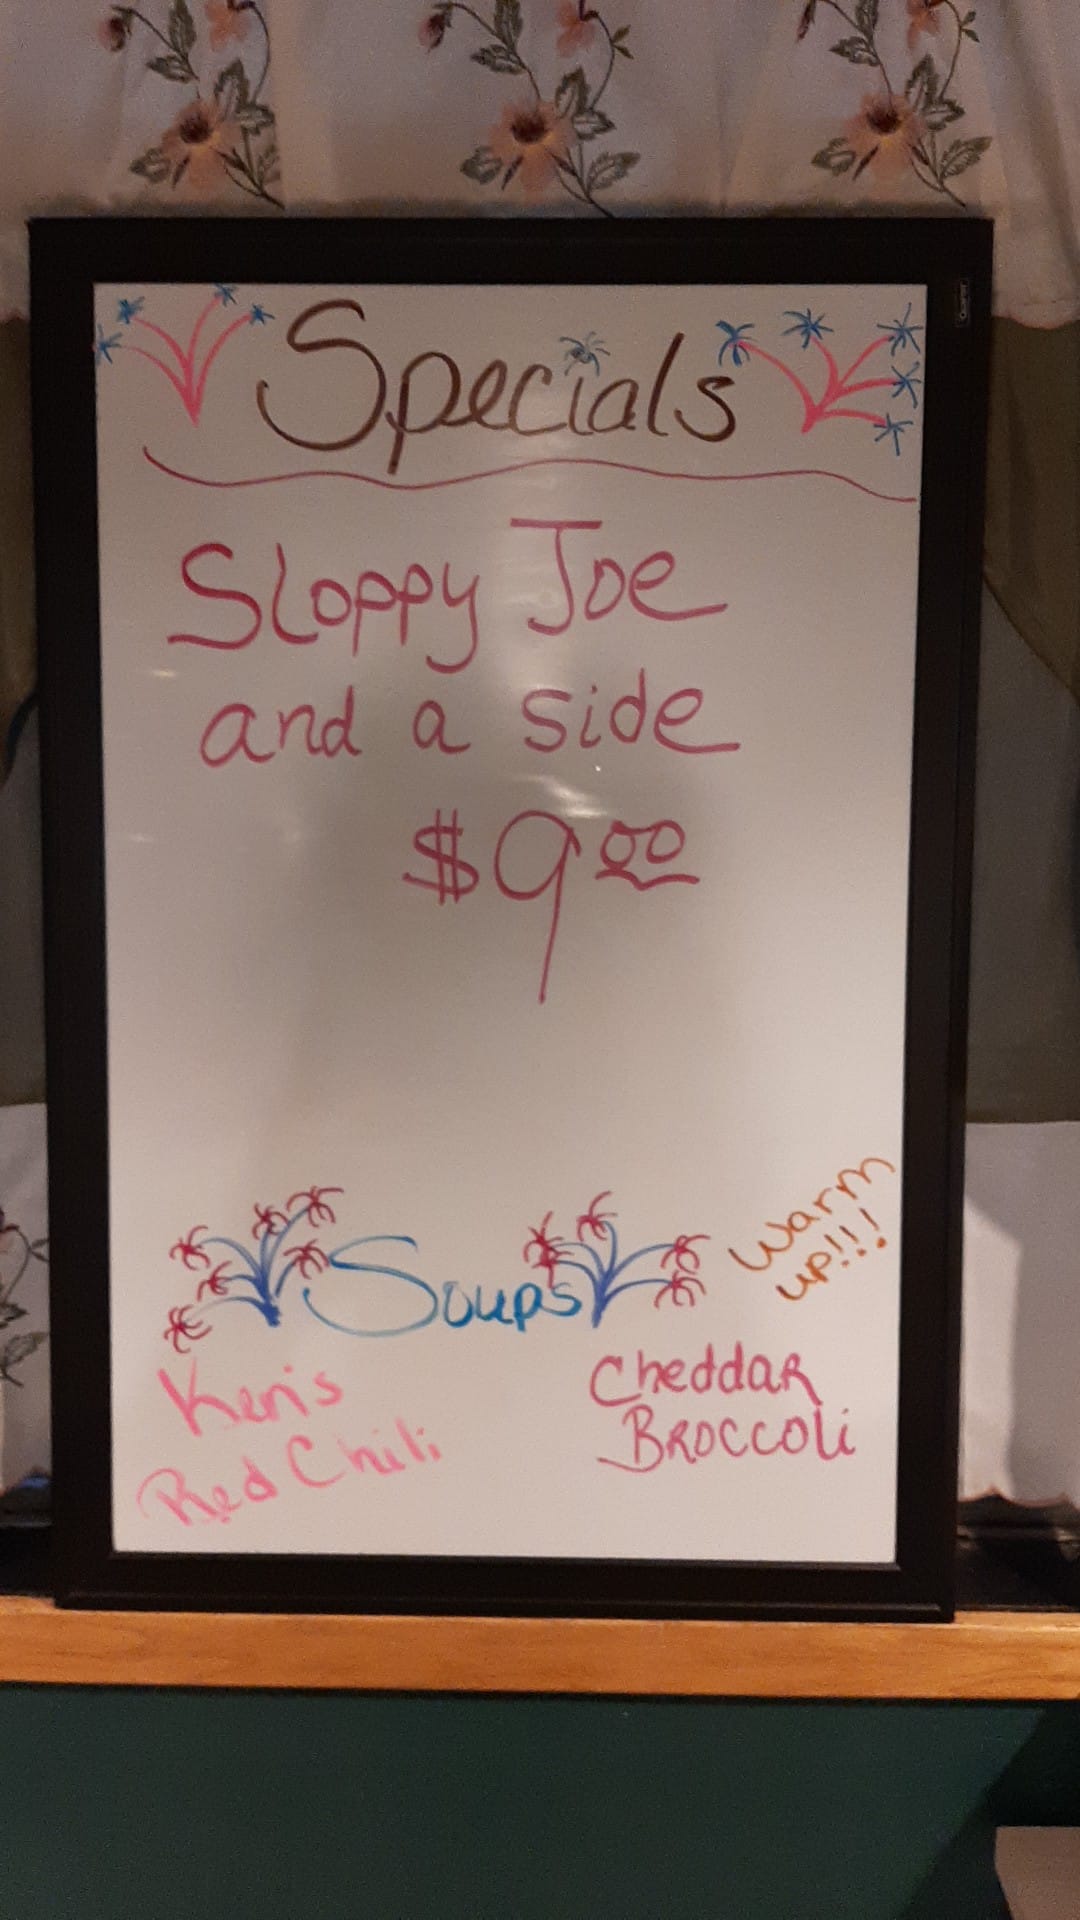 Specials
Sloppy Joe
and a side
$9.00
Warm
up!!!
Soups
Cheddar
Broccoli
Red Chili